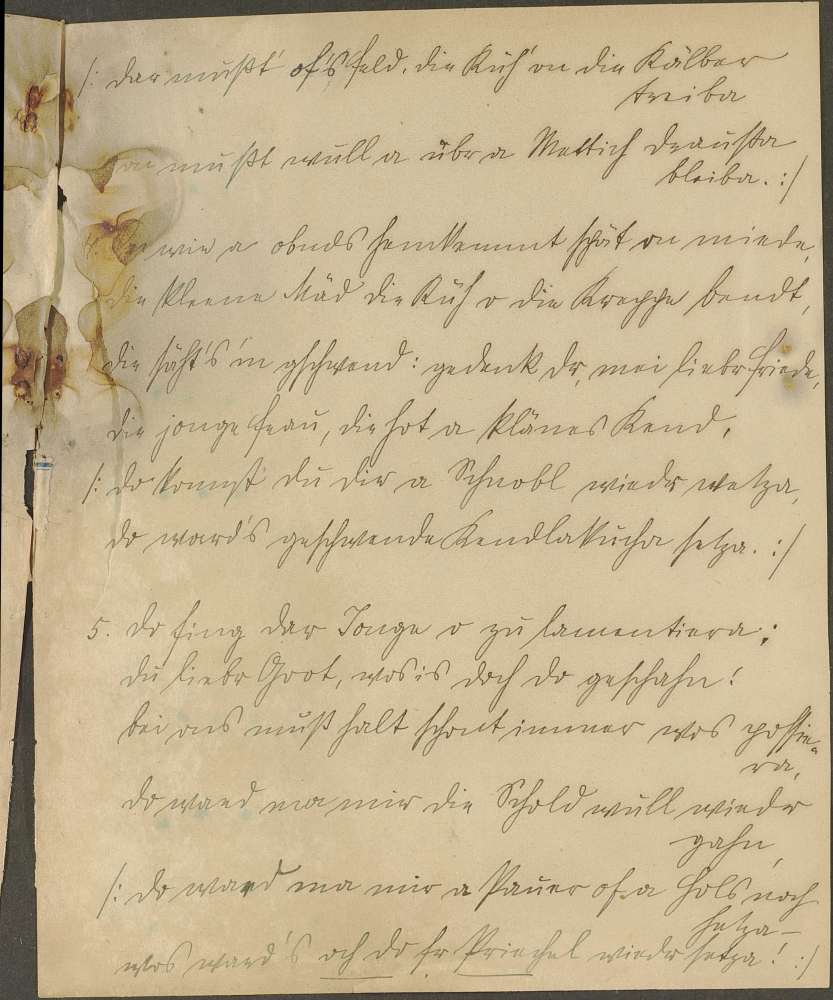 /: dar mußt' of's Feld, die Küh' on die Kälber
treiba
on mußt wull a übr a Mettich draußa
bleiba. :/
4. On wie a obnds hemkemmt spät on miede,
die kleene Mäd die Küh o die Kreppe bendt,
die säht's 'm gschwend: gedenk dr, mei liebr Friede,
die jonge Frau, die hot a klänes Kend,
/: do konnst du dir a Schnobl wiedr wetza,
do ward's geschwende Kendlakucha setza. :/
5. Do fing dar Jonge o zu lamentiera:
du liebr Goot, wos is doch do geschahn!
bei ons muß halt schont immer wos possie-
ra,
do ward ma mir die Schold wull wiedr
gahn,
/: do ward ma mir a Pauer of a Hols noch
hetza –
wos ward's och do fr Priechel wiedr setza! :/